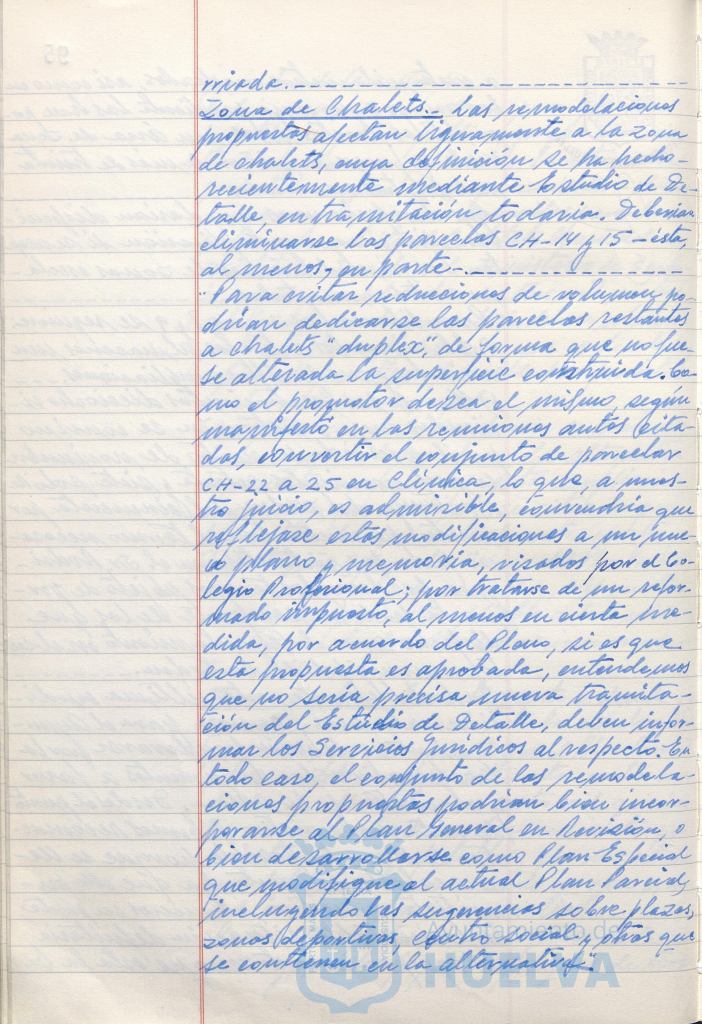 rriada.
Zona de Chalets.- Las remodelaciones
propuestas afectan ligeramente a la zona
de chalets, cuya definición se ha hecho
recientemente mediante Estudio de De-
talle, en tramitación todavia. Deberian
eliminarse las parcelas CH-14 y 15 - ésta,
al menos, en parte-.
"Para evitar reducciones de volumen po-
drian dedicarse las parcelas restantes
a chalets "duplex", de forma que no fue-
se alterada la superficie construida. Co-
mo el promotor desea el mismo, según
manifestó en las reuniones antes cita-
das, convertir el conjunto de parcelas
CH-22 a 25 en Clínica, lo que, a nues-
tro juicio, es admisible, convendría que
reflejase estas modificaciones a un nue-
vo plano y memoria, visados por el Co-
legio Profesional; por tratarse de un refor-
mado impuesto, al menos en cierta me-
dida, por acuerdo del Pleno, si es que
esta propuesta es aprobada, entendemos
que no sería precisa nueva tramita-
ción del Estudio de Detalle, deben infor-
mar los Servicios Jurídicos al respecto. En
todo caso, el conjunto de las remodela-
ciones propuestas podrian bien incor-
porarse al Plan General en Revisión, o
bien desarrollarse como Plan Especial
que modifique al actual Plan Parcial,
incluyendo las sugerencias sobre plazas,
zonas deportivas, centro social y otras que
se contienen en la alternativa"
Ayuntamiento de
HUELVA